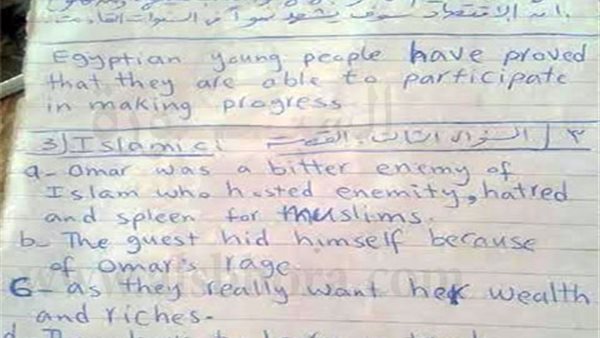 أنه الاقتصاد سوف يشهد نمواً في السنوات القادمة.
Egyptian young people have proved
that they are able to participate
in making progress
3) Islamic: السؤال الثالث: القصة ٣
a- Omar was a bitter enemy of
Islam who hosted enmity, hatred
and spleen for muslims.
b- The guest hid himself because
of Omar's rage
C- as they really want her wealth
and riches-
d